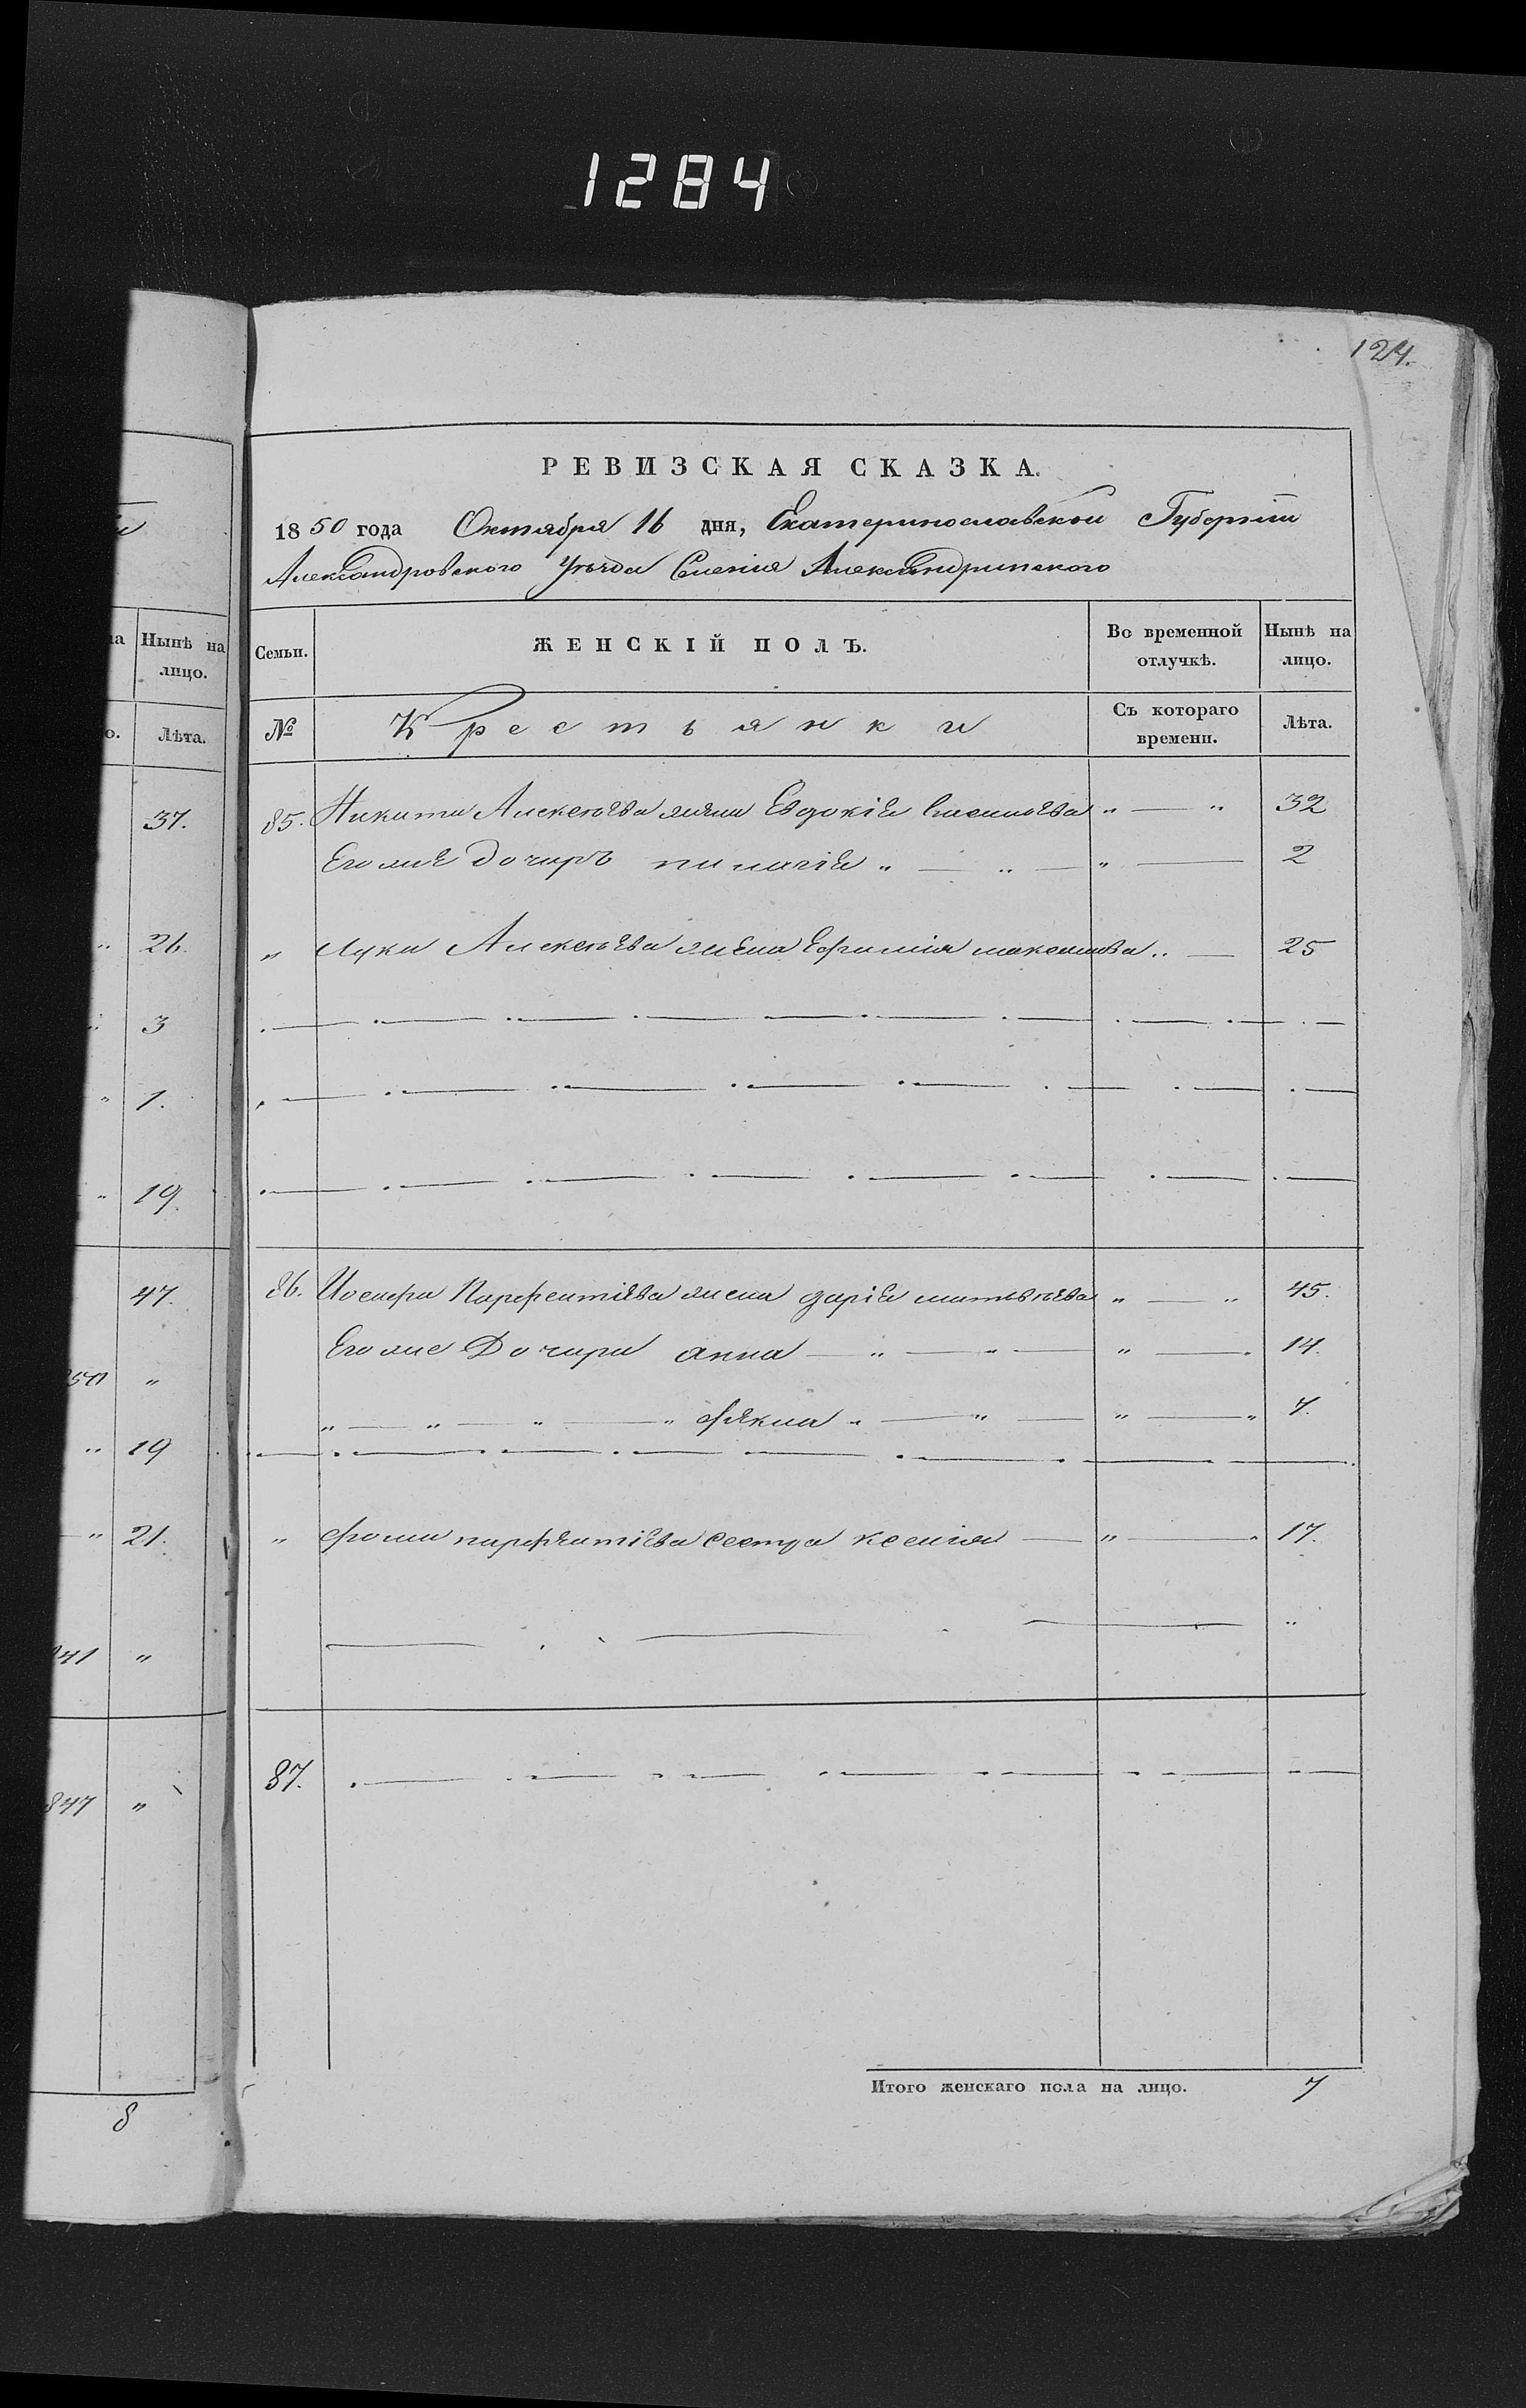 1284
124.
РЕВИЗСКАЯ СКАЗКА.
1850 года Октября 16 дня, Екатеринославской Губернии
Александровского Уезда Селения Александринского
на Нынѣ на лицо.
о. Лѣта.
Семьи. ЖЕНСКІЙ ПОЛЪ. Во временной отлучкѣ. Нынѣ на лицо.
№ Крестьянки Съ котораго времени. Лѣта.
37.
85. Никиты Алексеева жена Евдокіе Василева " — " 32
Его же дочирь пилагіе " — " — " — 2
" 26.
" Луки Алексеева жена Ефимия максимова " — 25
" 3
" 1.
" 19.
47.
86. Иосифа Парфентіева жена дарiе матвеева " — " 45.
Его же Дочири анна — " — " — " — 14.
" — " — " — " фекла " — " — " — " 7.
" "
" 19
" 21.
" фомы парфентіева сестра ксения — " — 17.
"
41 "
87.
847 "
8
Итого женскаго пола на лицо. 7